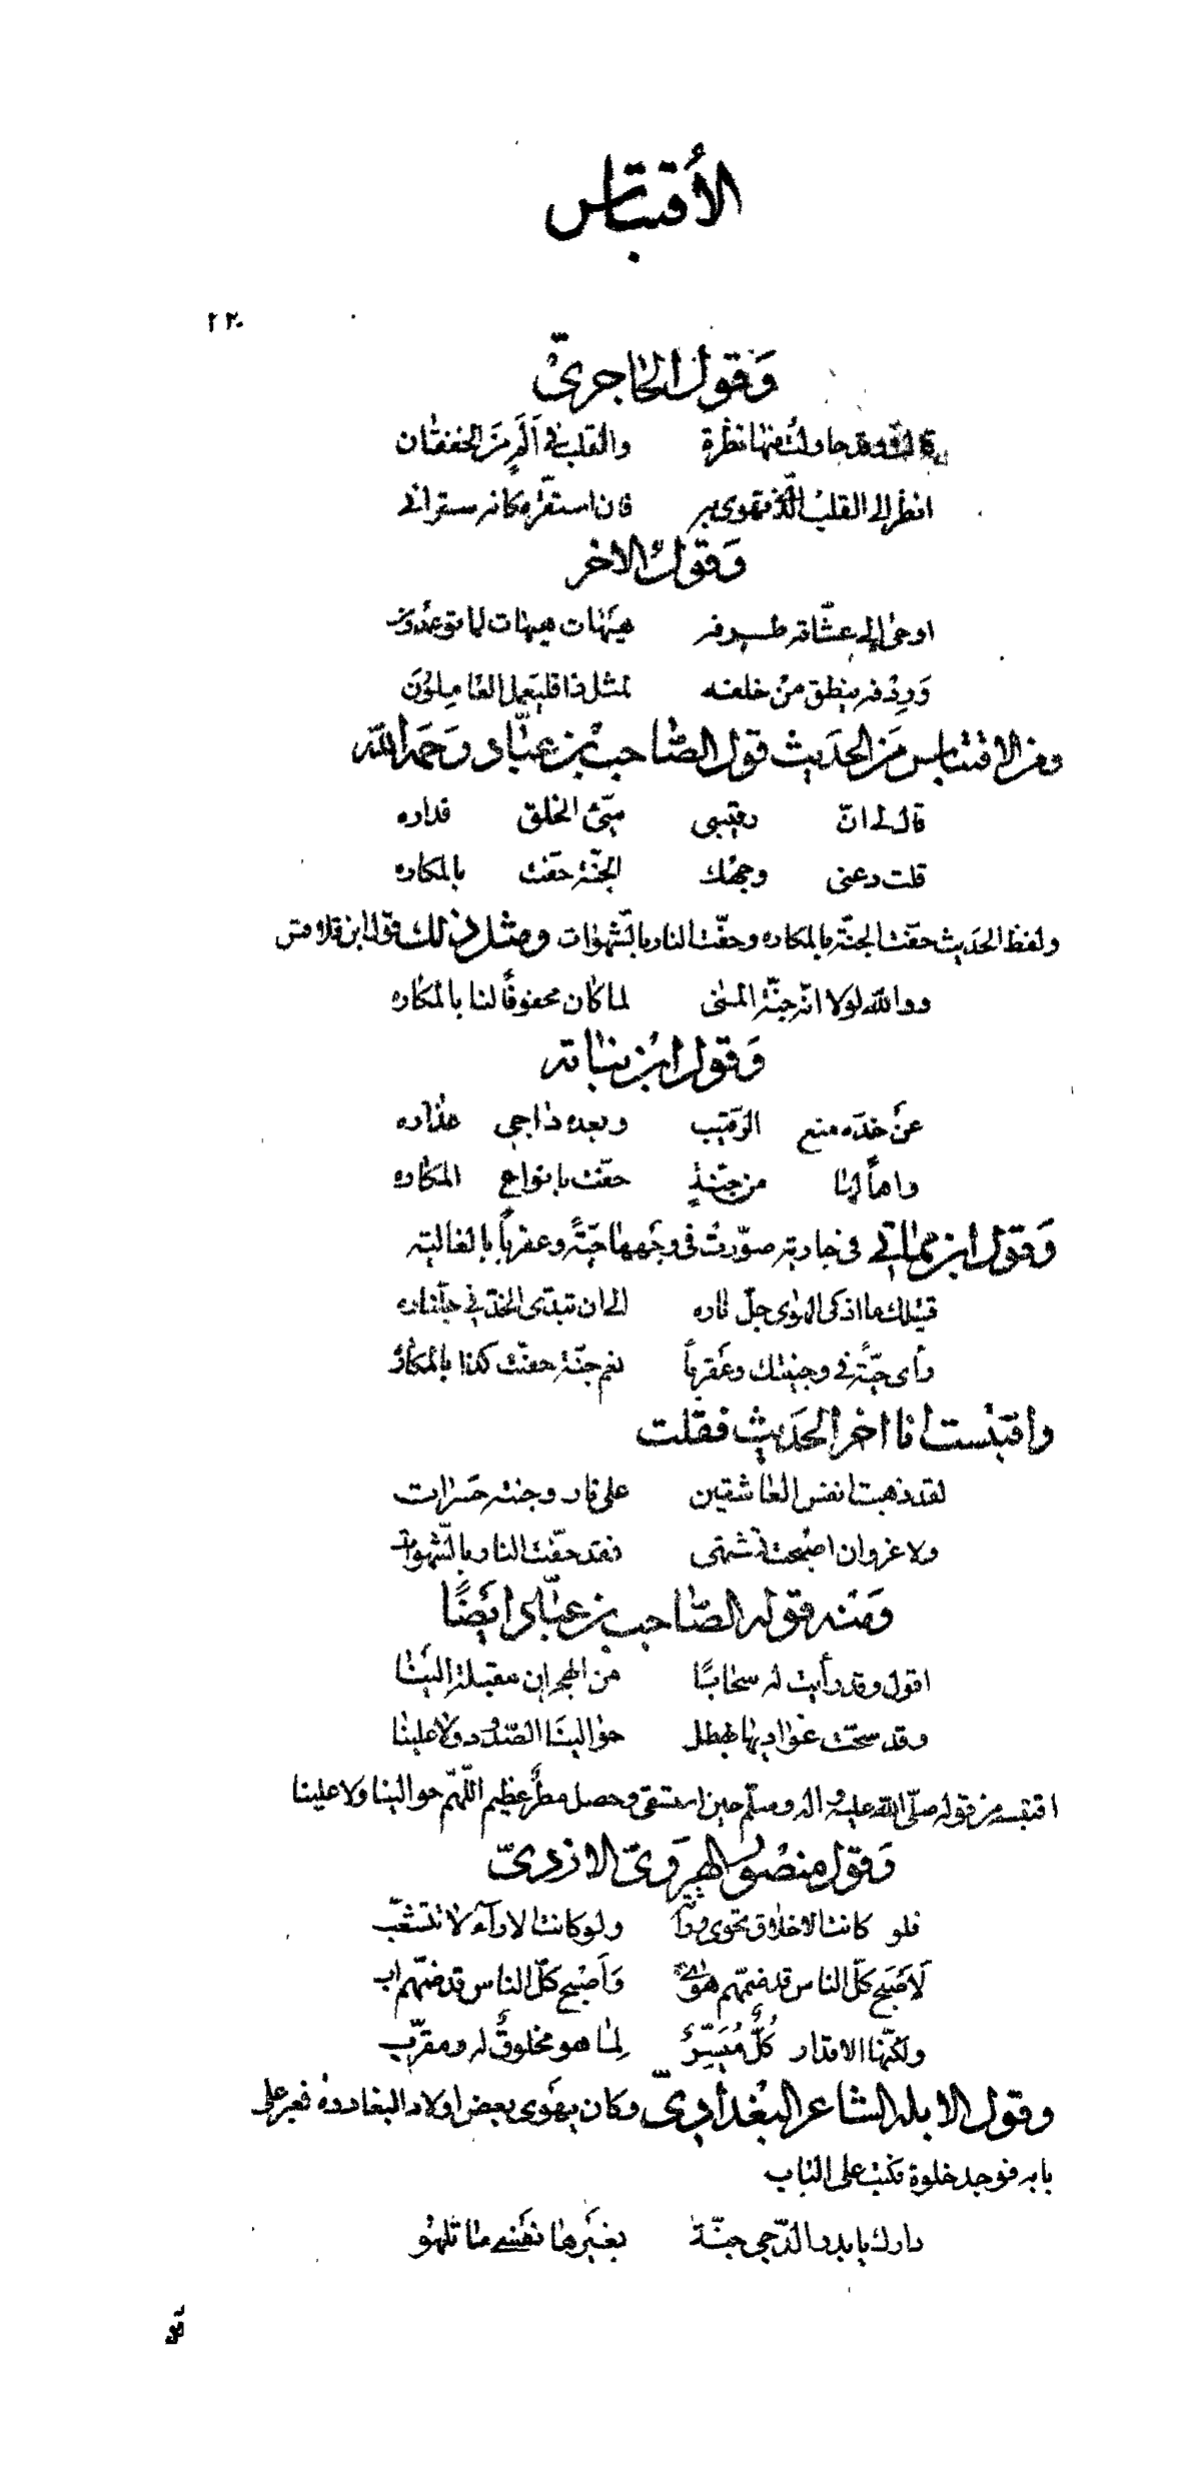 الأقتباس
٢٢٠
وَقول الحاجريّ
قالت وقد حاولت منها نظرة والقلب في ألم من الخفقان
انظر الى القلب الّذي تهوى به فان استقرّ مكانه ستراني
وَقول الاخر
اوحى إلى عشّاقه طرفه هَيهات هيهات لما توعدون
وَرِدْفه ينطق من خلفه لمثل ذا فليعمل العاملون
ومن الاقتباس من الحَديث قول الصّاحب بن عبّاد رحمه الله
قال لى انّ رقيبى سيّئ الخلق فداره
قلت دعنى وجهك الجنّة حفّت بالمكاره
ولفظ الحَديث حفّت الجنّة بالمكاره وحفّت النار بالشّهوات ومثل ذلك قول ابن قلاقس
ووالله لولا انّه جنّة المنى لما كان محفوفًا لنا بالمكاره
وَقول ابن نباته
عن خدّه منع الرّقيب وبعده داجى عذاره
واهاً لها من جنّةٍ حفّت بانواع المكاره
وَقول ابن مماتي في جارية صوّرت في وجهها حيّةً وعقرباً بالغالية
قبيلك ما اذكى الهوى جلّ ناره الى ان تبدّى الخدّ في جلّناره
رأى حيّةً في وجنتيك وعقرباً نعم جنّة حفّت كذا بالمكاره
واقتبست انا اخر الحَديث فقلت
لقد ذهبت انفس العاشقين على نار وجنته حَسَرات
ولا غرو ان اصبحت تشتهى فقد حفّت النار بالشّهوات
وَمنه قول الصّاحب بن عبّاد ايضًا
اقول وقد رأيت له سحابًا من الهجران مقبلة إلينا
وقد سحّت غواديها بهطل حوالينا الصّدود ولا علينا
اقتبسه من قوله صلّى الله عليه واله وسلّم حين استسقى وحصل مطرٌ عظيم اللّهمّ حوالينا ولا علينا
وَقول منصور الهروىّ الازدىّ
فلو كانت الاخلاق تحوى وراثة ولو كانت الاراء لا تتشعّب
لَأصبَح كلّ الناس قد ضمّهم هوى وَاَصْبح كلّ الناس قد ضمّهم اب
ولكنّها الاقدار كلٌّ مُيَسَّرٌ لِما هو مخلوقٌ له ومقرّب
وقول الابله الشاعر البغدادىّ وكان يهوى بعض اولاد البغاددة فعبر على
بابه فوجد خلوة فكتب على الباب
دارك يا بدر الدّجى جنّة بغيرها نفسى ما تلهو